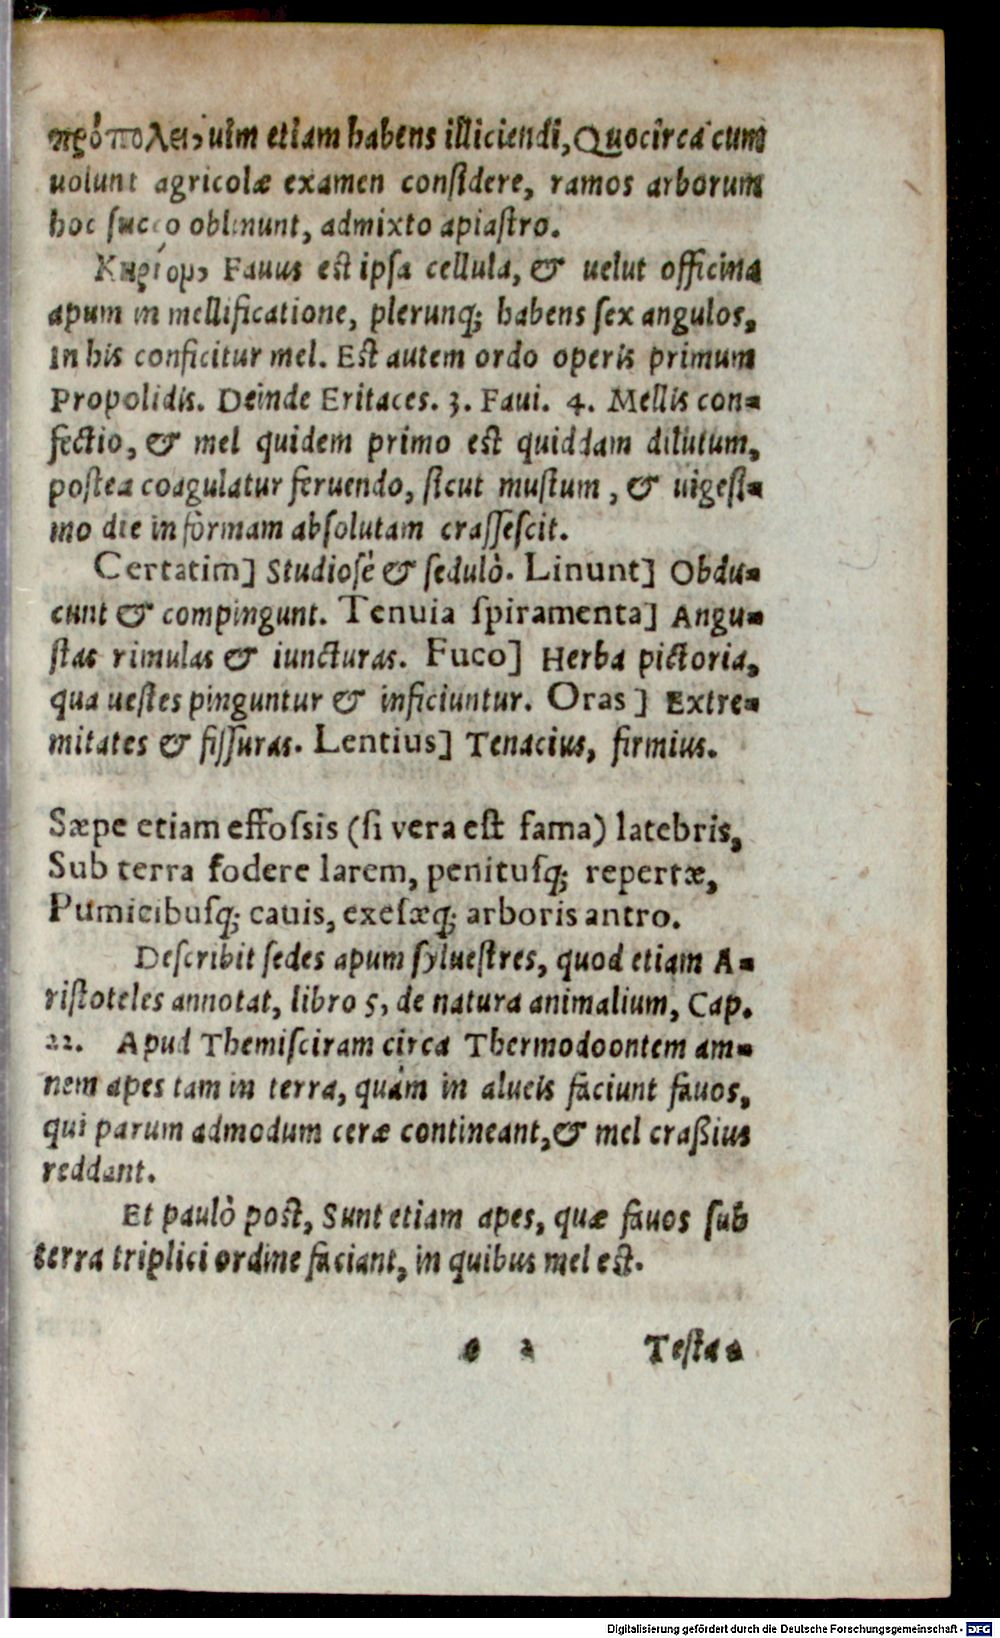 πρόπολει, uim etiam habens illiciendi, Quocirca cum
uolunt agricolæ examen considere, ramos arborum
hoc succo oblinunt, admixto apiastro.
Κηρίομ, Fauus est ipsa cellula, & uelut officina
apum in mellificatione, plerunq; habens sex angulos,
In his conficitur mel. Est autem ordo operis primum
Propolidis. Deinde Eritaces. 3. Faui. 4. Mellis con-
fectio, & mel quidem primo est quiddam dilutum,
postea coagulatur feruendo, sicut mustum, & uigesi-
mo die in formam absolutam crassescit.
Certatim] Studiosè & sedulò. Linunt] Obdu-
cunt & compingunt. Tenuia spiramenta] Angu-
stas rimulas & iuncturas. Fuco] Herba pictoria,
qua uestes pinguntur & inficiuntur. Oras] Extre-
mitates & fissuras. Lentius] Tenacius, firmius.
Sæpe etiam effossis (si vera est fama) latebris,
Sub terra fodere larem, penitusq; repertæ,
Pumicibusq; cauis, exesæq; arboris antro.
Describit sedes apum syluestres, quod etiam A-
ristoteles annotat, libro 5, de natura animalium, Cap.
22. Apud Themisciram circa Thermodoontem am-
nem apes tam in terra, quàm in alueis faciunt fauos,
qui parum admodum ceræ contineant, & mel craßius
reddant.
Et paulò post, Sunt etiam apes, quæ fauos sub
terra triplici ordine faciant, in quibus mel est.
2 Testa-
Digitalisierung gefördert durch die Deutsche Forschungsgemeinschaft - DFG